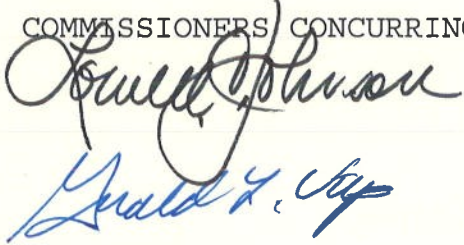 COMMISSIONERS CONCURRING
Lowell J. Johnson
Gerald L. Vap